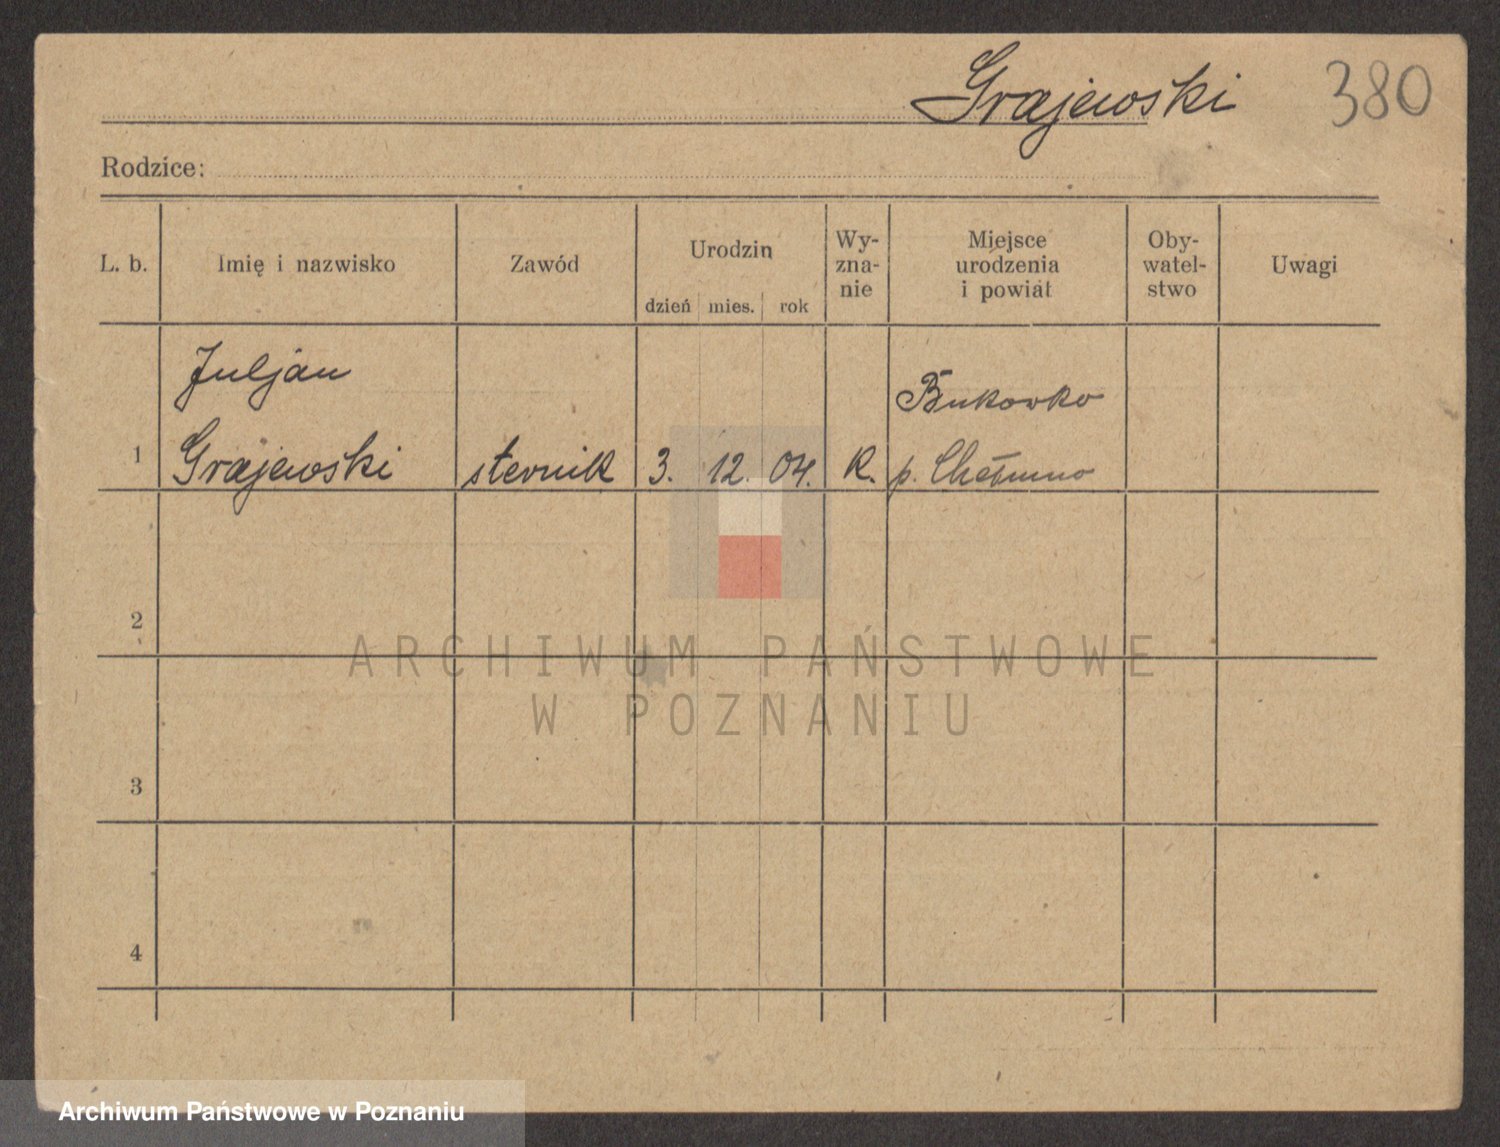 Grajewski 380
Rodzice:
L. b. Imię i nazwisko Zawód Urodzin dzień mies. rok Wy-zna-nie Miejsce urodzenia i powiat Oby-watel-stwo Uwagi
Juljan
Bukowko
1 Grajewski sternik 3. 12. 04. K. p. Chełmno
2
ARCHIWUM PAŃSTWOWE
W POZNANIU
3
4
Archiwum Państwowe w Poznaniu